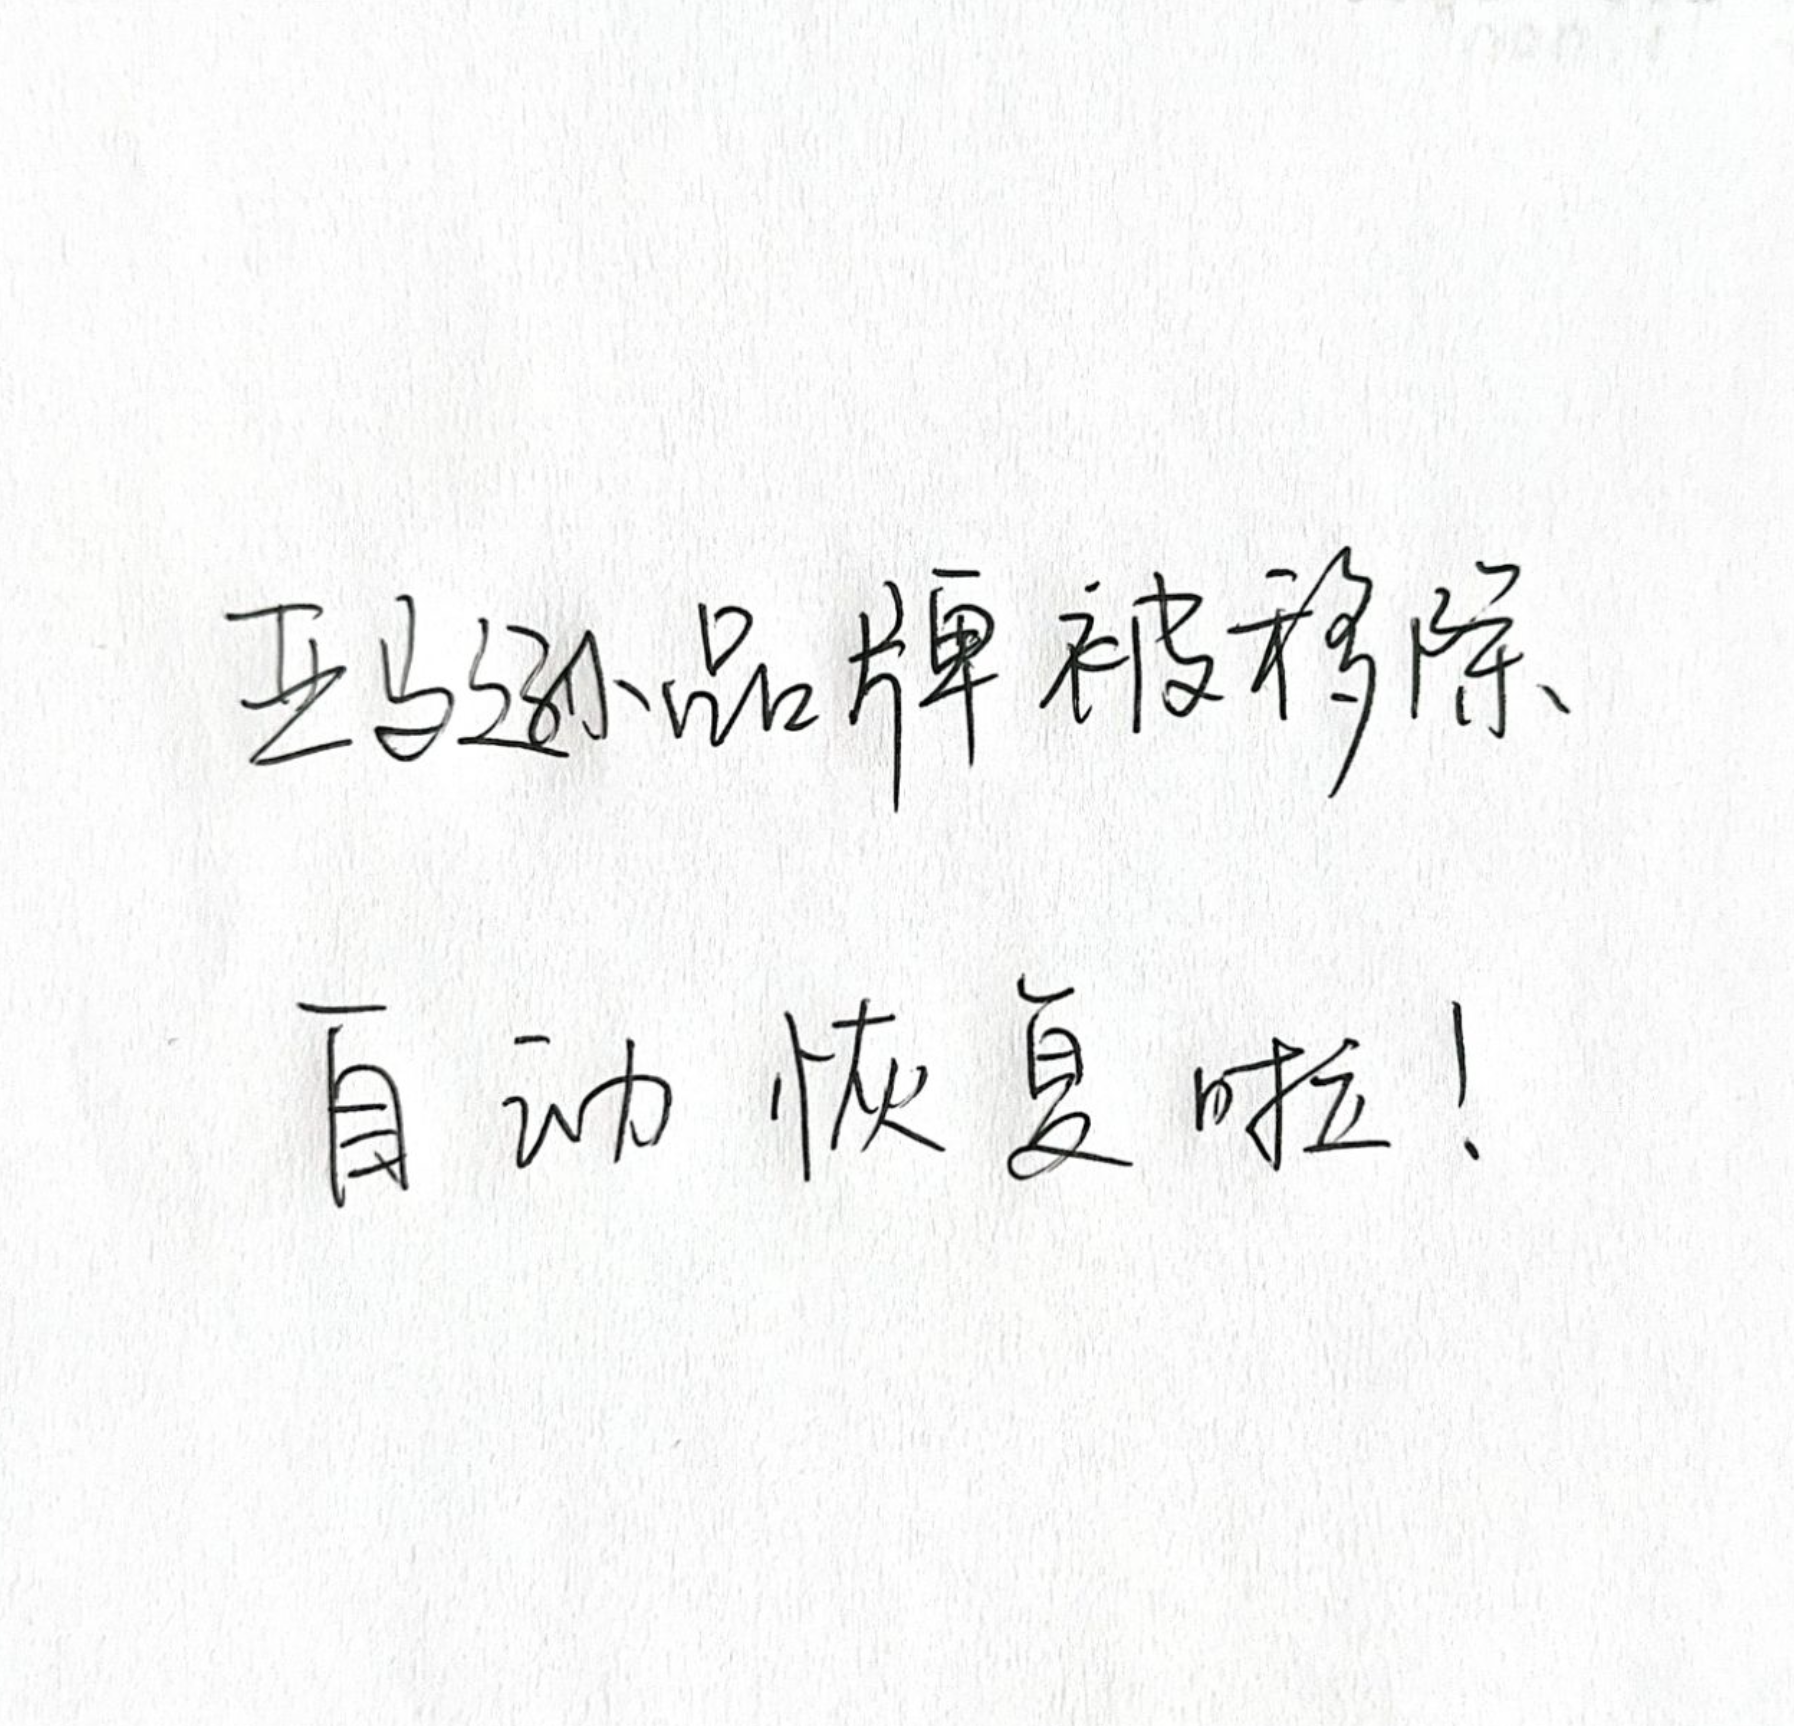 亚马逊品牌被移除
自动恢复啦！